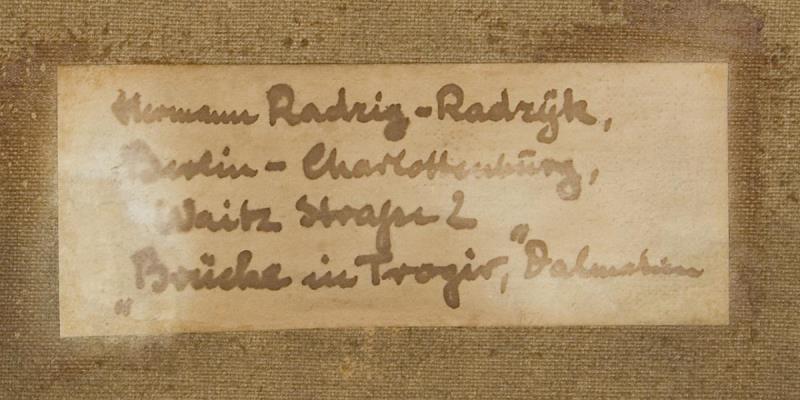 Hermann Radzig-Radzÿk,
Berlin-Charlottenburg,
Waitz Straße 2
„Brücke in Trogir,“ Dalmatien